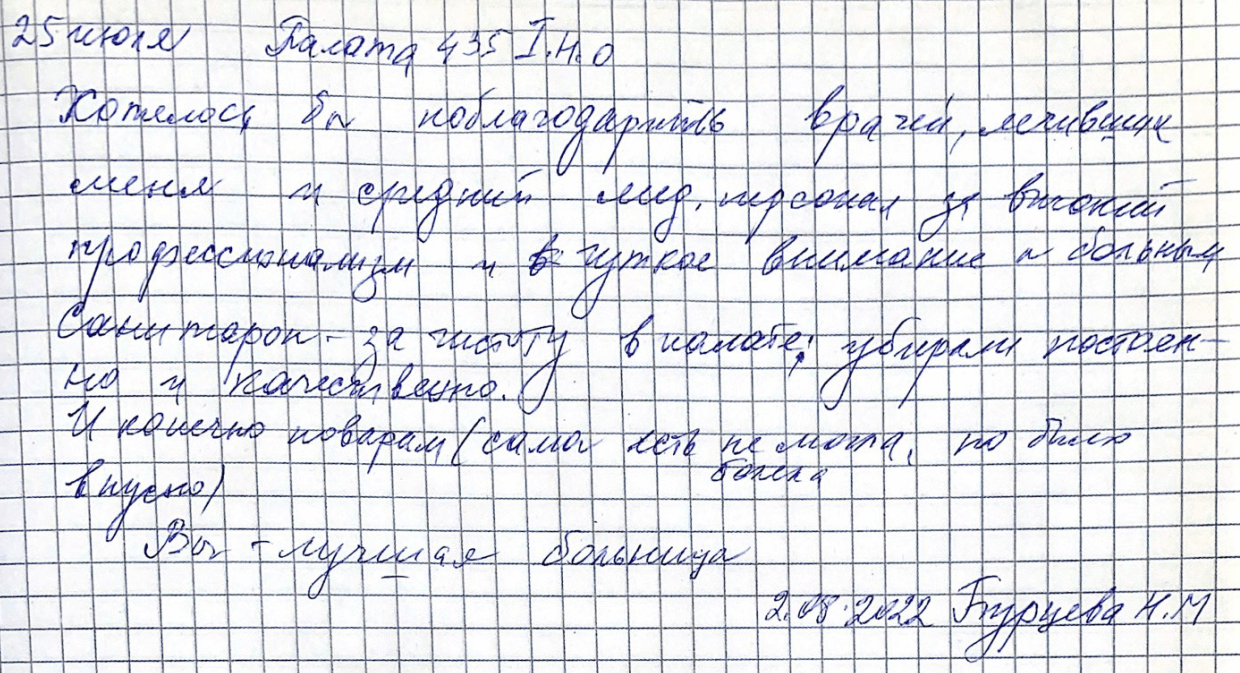 25 июля Палата 435 I.Н.О
Хотелось бы поблагодарить врачей, лечивших
меня и средний мед. персонал за высокий
профессионализм и чуткое внимание к больным
Санитарок - за чистоту в палате; убирали постоен-
но и качественно.
И конечно поварам (сама есть не могла, но было
болела
вкусно)
Вы - лучшая больница
2.08.2022 Бурцева Н.М